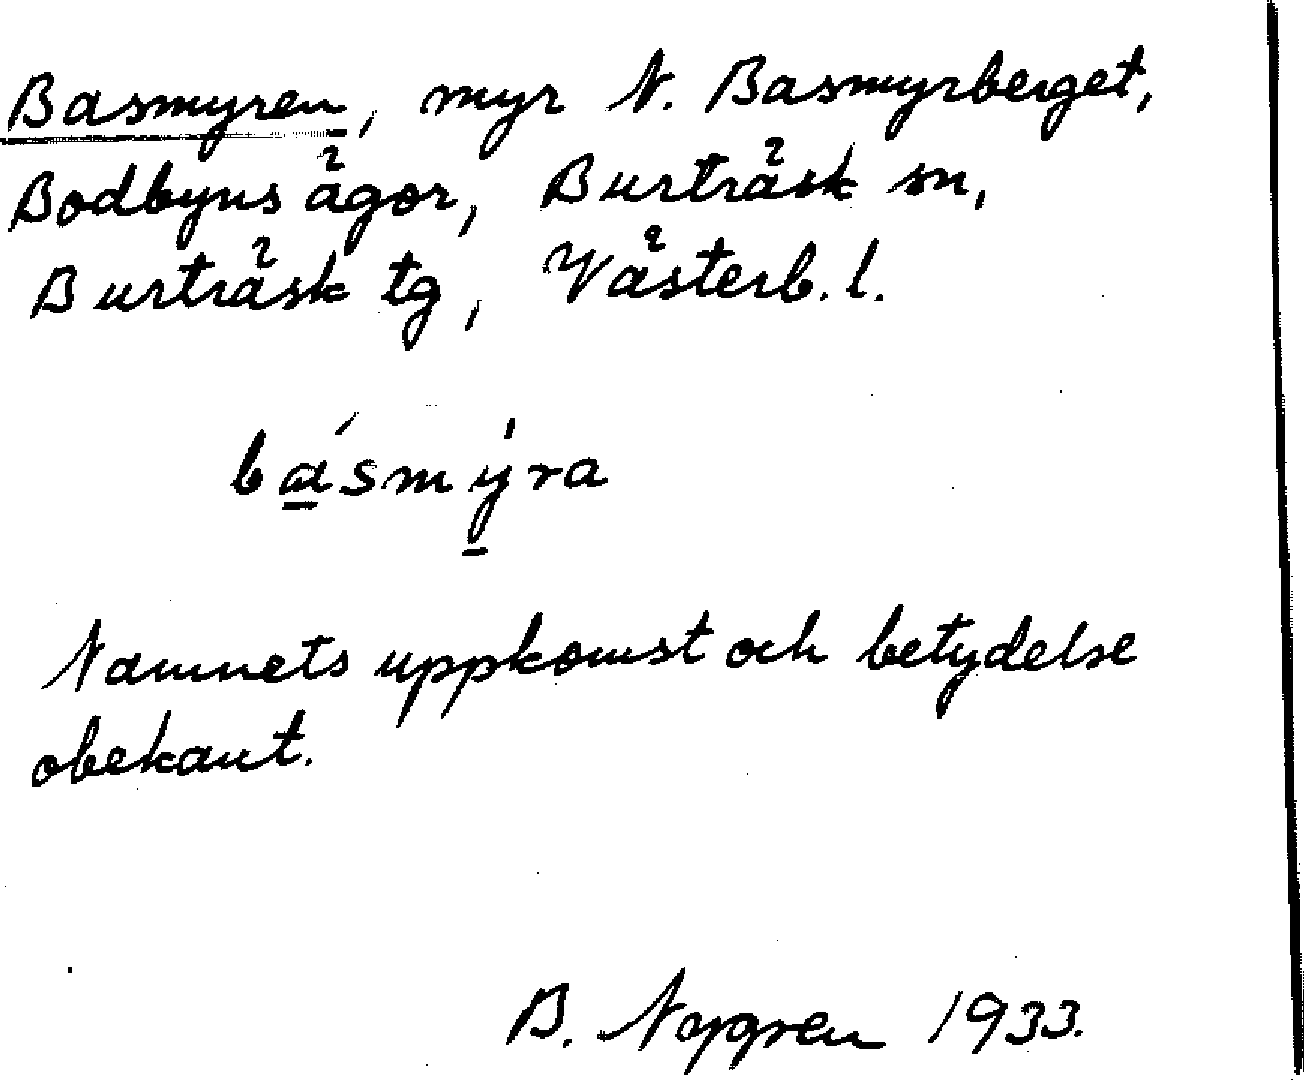 Basmyren, myr N. Basmyrberget,
Bodbyns ägor, Burträsk sn,
Burträsk tg, Västerb. l.
básmýra
Namnets uppkomst och betydelse
obekant.
B. 1933.